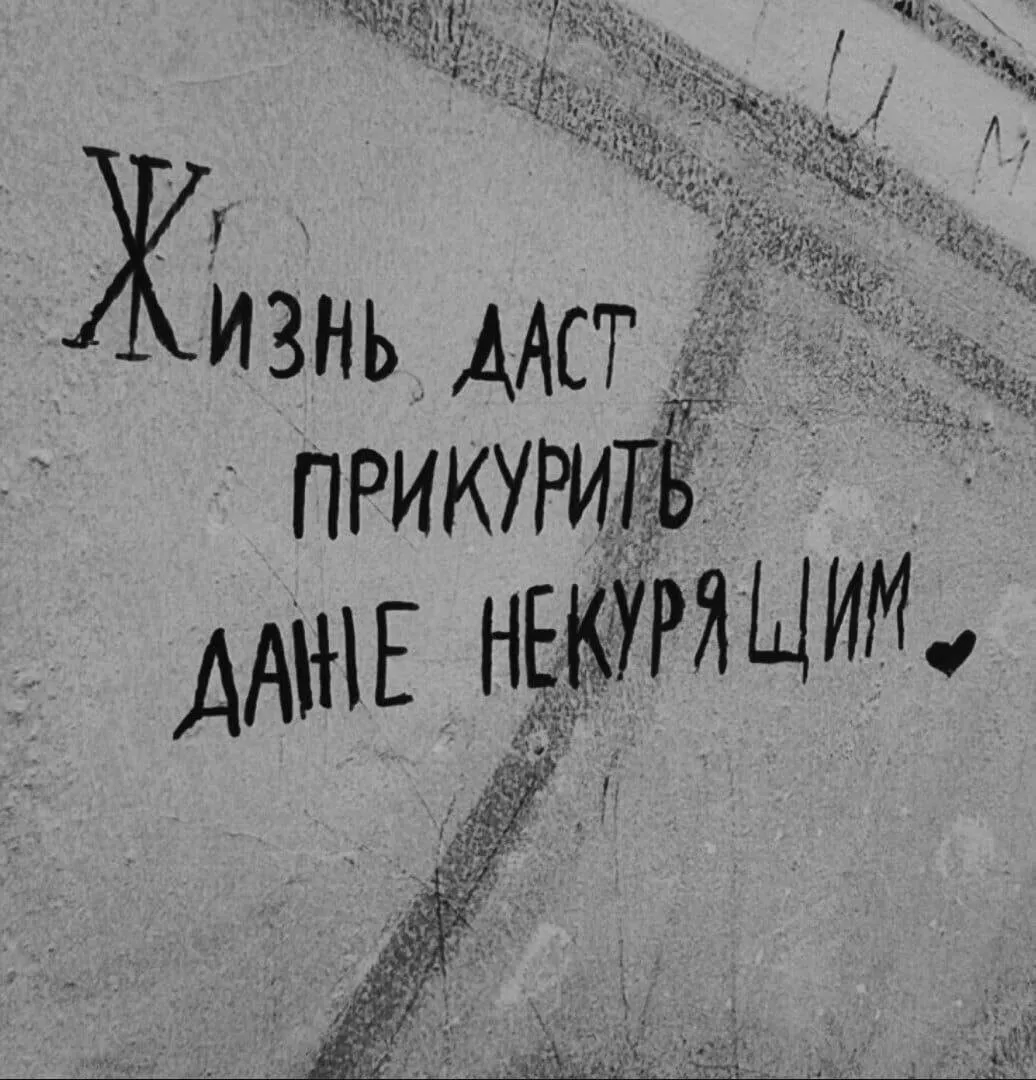 Жизнь даст
прикурить
даже некурящим.